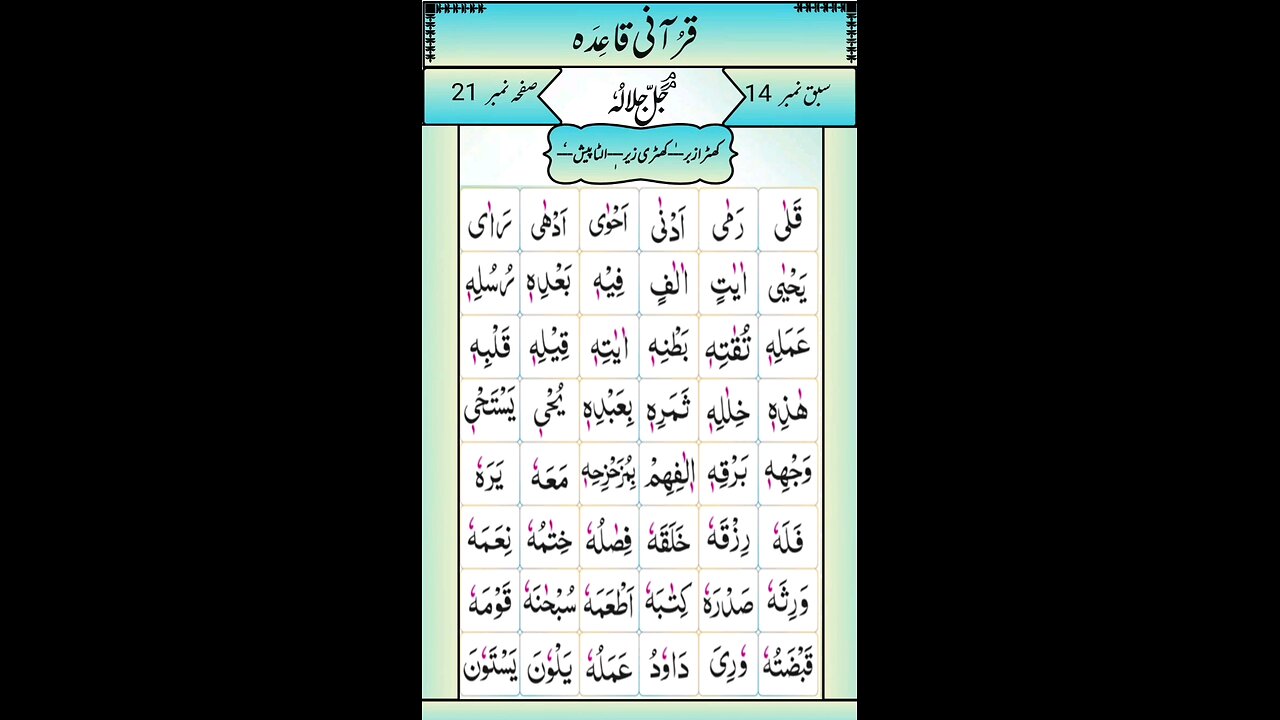 قرآنی قاعِدَہ
سبق نمبر 14 جلّ جلالہٗ صفحہ نمبر 21
کھڑا زبر — کھڑی زیر — الٹا پیش —
قَلٰى رَمٰى اَدْنٰى اَحْوٰى اَدْهٰى رَاٰى
يَحْيٰى اٰيٰتٍ اٰلٰفٍ فِيْهٖ بَعْدِهٖ رُسُلِهٖ
عَمَلِهٖ تُقٰتِهٖ بَطْنِهٖ اٰيٰتِهٖ قِيْلِهٖ قَلْبِهٖ
هٰذِهٖ خِلٰلِهٖ ثَمَرِهٖ بِعَبْدِهٖ يُحْيٖ يَسْتَحْيٖ
وَجْهِهٖ بَرْقِهٖ اٖلٰفِهِمْ بِمُزَحْزِحِهٖ مَعَهٗ يَرَهٗ
فَلَهٗ رِزْقَهٗ خَلَقَهٗ فِصٰلُهٗ خِتٰمُهٗ نِعَمَهٗ
وَرِثَهٗ صَدْرَهٗ كِتٰبَهٗ اَطْعَمَهٗ سُبْحٰنَهٗ قَوْمَهٗ
قَبْضَتُهٗ وٗرِىَ دَاوٗدُ عَمَلُهٗ يَلْوٗنَ يَسْتَوٗنَ